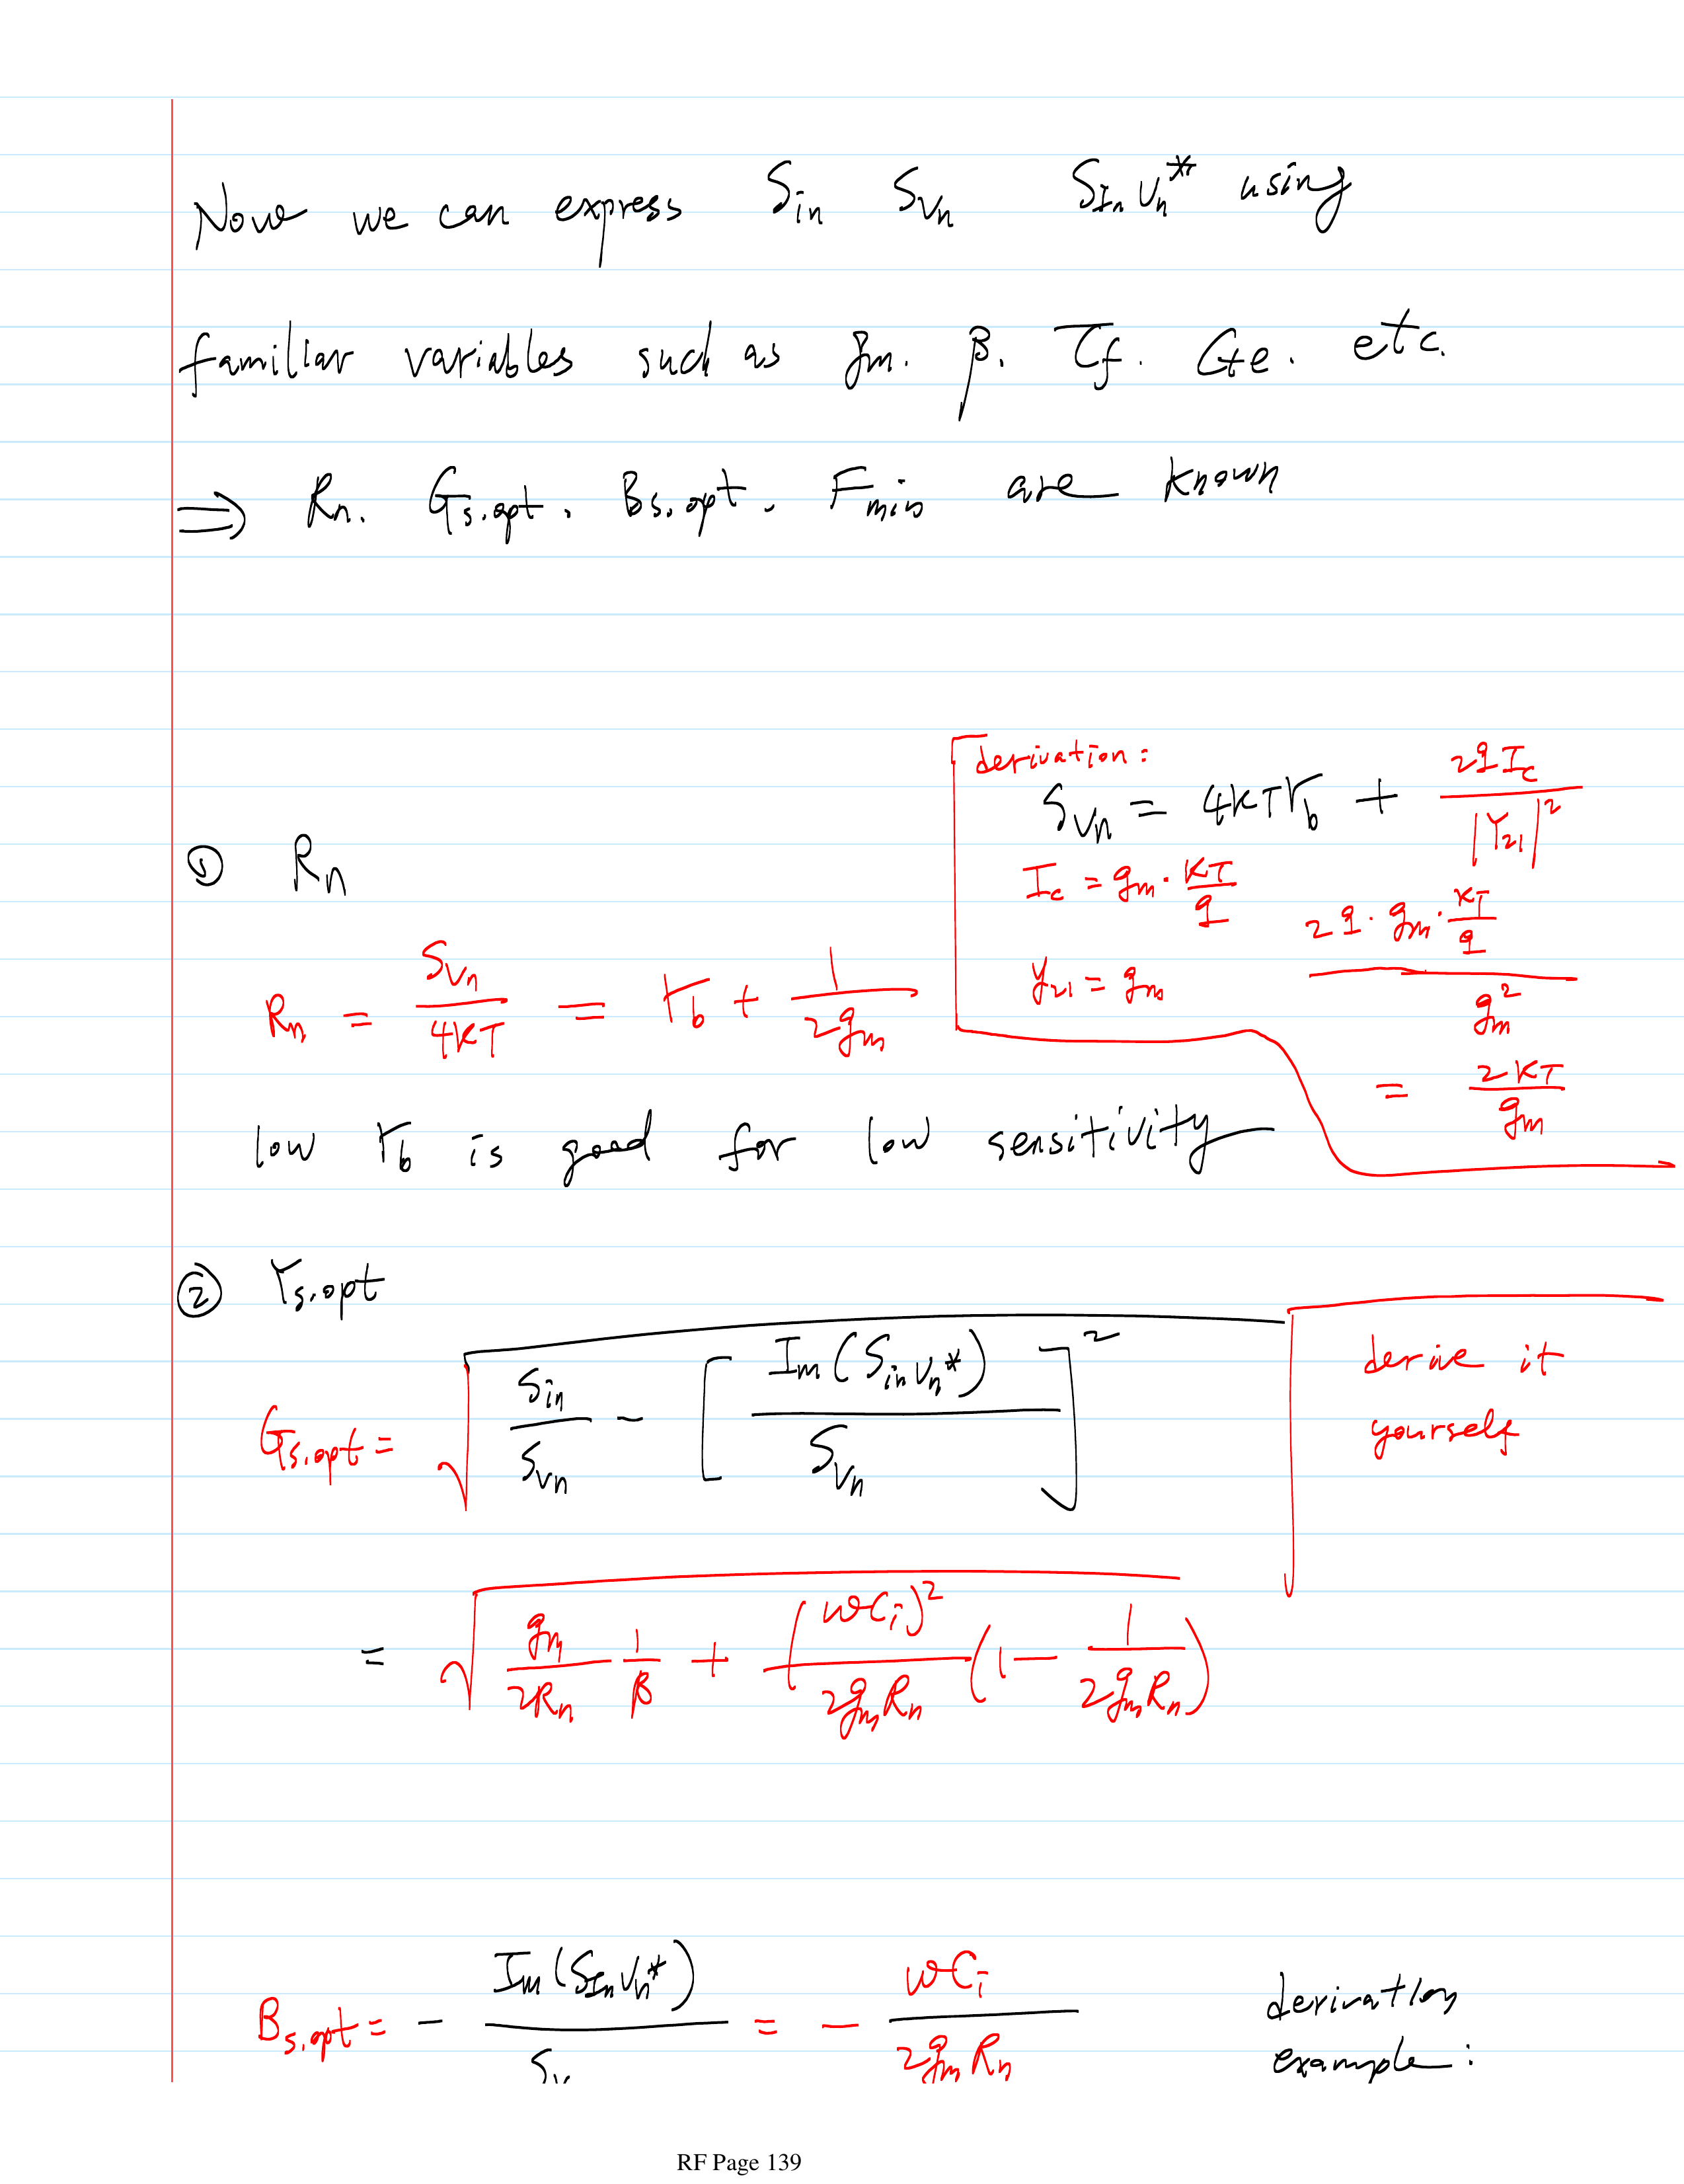 Now we can express Sin Svn SInVn* using
familiar variables such as gm. β. τf. Cte. etc.
⇒ Rn. Gs.opt. Bs.opt. Fmin are known
derivation:
Svn = 4KTrb + 2qIc / |Y21|²
① Rn
Ic = gm · KT/q
2q · gm · KT/q / gm²
y21 = gm
Rn = Svn / 4KT = rb + 1 / 2gm
= 2KT / gm
low rb is good for low sensitivity
② Ys.opt
Gs.opt = √( Sin / Svn - [ Im(SinVn*) / Svn ]² )
derive it
yourself
= √( gm / 2Rn 1/β + (ωCi)² / 2gmRn (1 - 1 / 2gmRn) )
Bs.opt = - Im(SInVn*) / Sv = - ωCi / 2gmRn
derivation
example:
RF Page 139